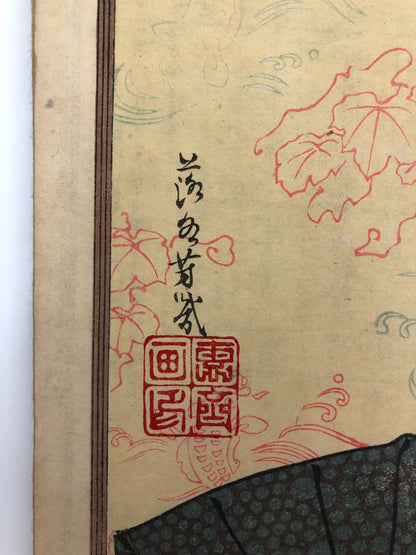 落合芳幾
惠斎画印